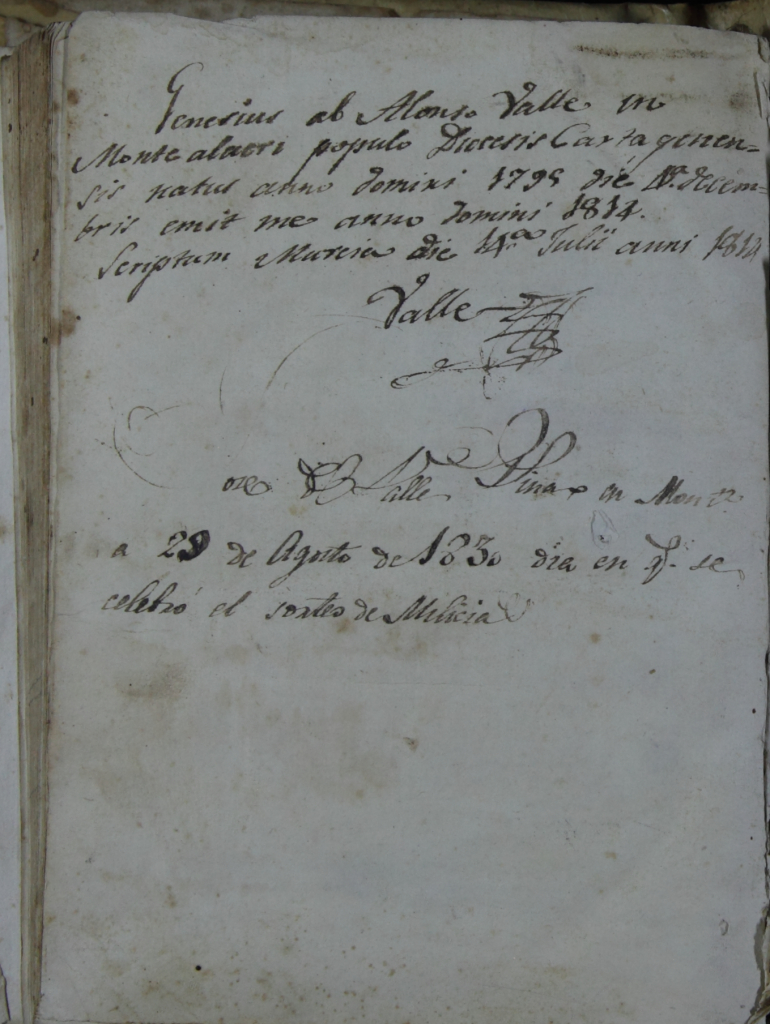 Genesius ab Alonso Valle in
Monte alacri populo Diocesis Cartagenen=
sis natus anno domini 1795 die decem=
bris emit me anno domini 1814.
Scriptum Murcia die 14ª Julii anni 1814
Valle
Valle en
a 29 de Agosto de 1830 dia en q.e se
celebró el sorteo de Milicia